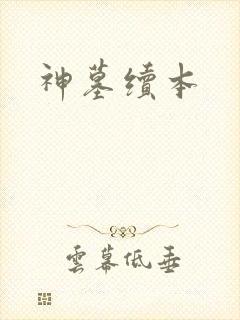 神墓續本
雲幕低垂